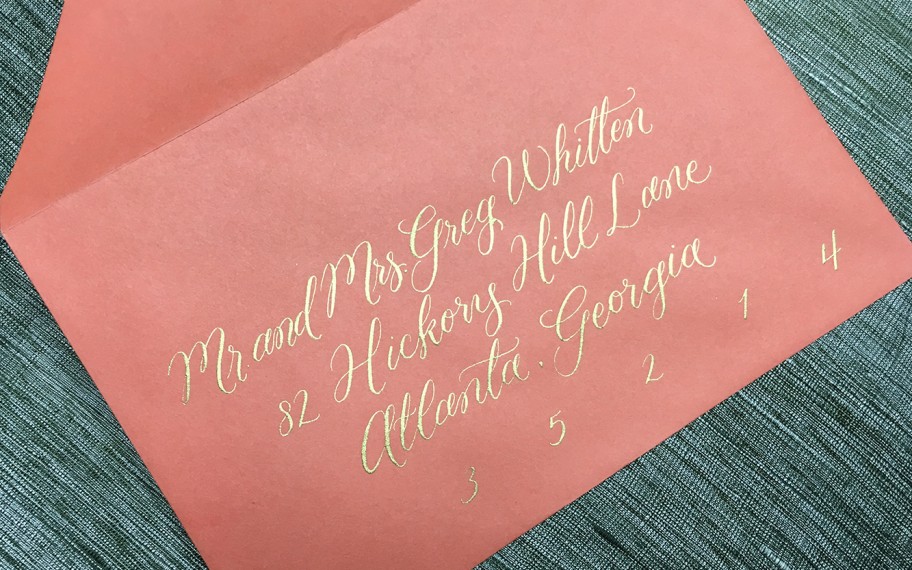 Mr. and Mrs. Greg Whitten
82 Hickory Hill Lane
Atlanta, Georgia
3 5 2 1 4